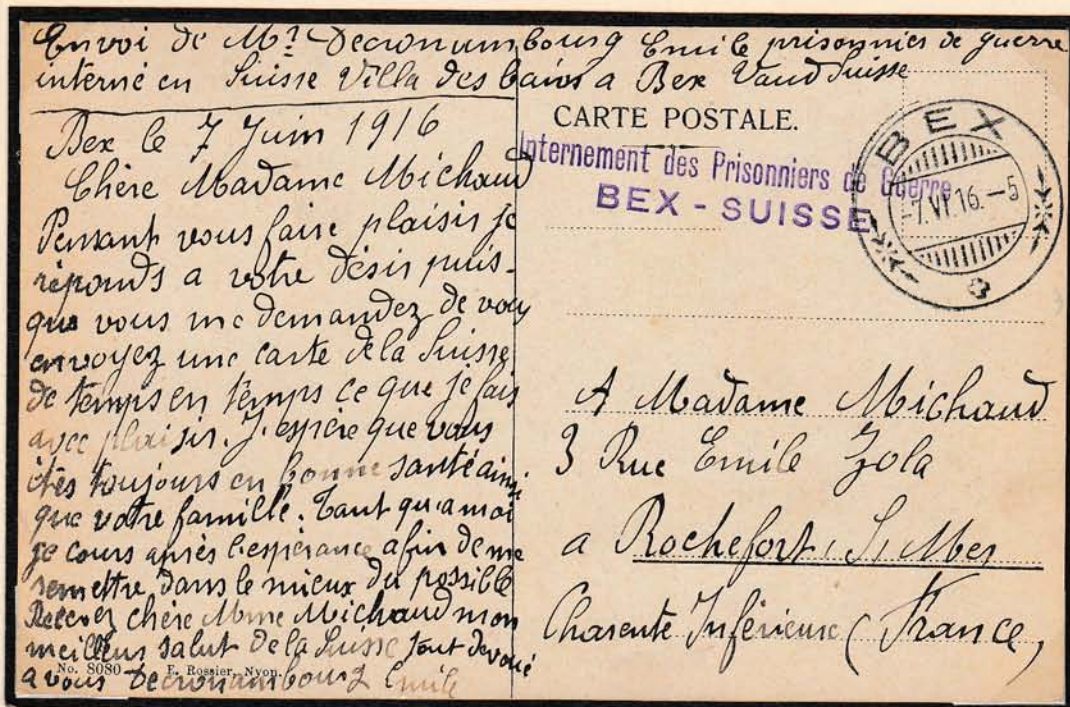 Envoi de Mr Decronumbourg Emile prisonnier de guerre
interné en Suisse Villa des bains a Bex Vaud Suisse
Bex le 7 Juin 1916
Chère Madame Michaud
Pensant vous faire plaisir je
réponds a votre désir puis-
que vous me demandez de vous
envoyez une carte de la Suisse
de temps en temps ce que je fais
avec plaisir. J'espère que vous
êtes toujours en bonne santé ainsi
que votre famille. Tant qu'a moi
je cours après l'espérance afin de me
remettre dans le mieux du possible
Recevez chère Mme Michaud mon
meilleur salut de la Suisse tout dévoué
a vous Decronambourg Emile
No. 8080 E. Rossier, Nyon.
CARTE POSTALE.
Internement des Prisonniers de Guerre
BEX - SUISSE
BEX
-7.VI.16.-5
A Madame Michaud
3 Rue Emile Zola
a Rochefort S, Mer
Charente Inférieure (France)